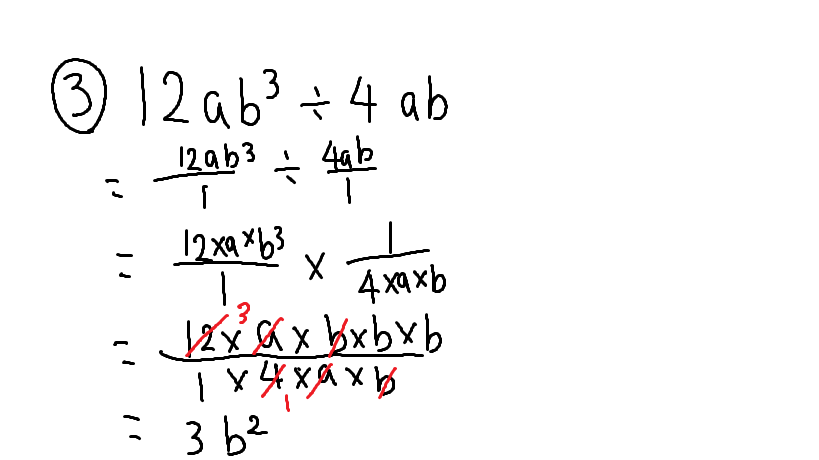 ③ 12ab³ ÷ 4ab
= 12ab³/1 ÷ 4ab/1
= 12×a×b³/1 × 1/4×a×b
= 12×3 a×b×b×b/1×4×a×b 1
= 3b²